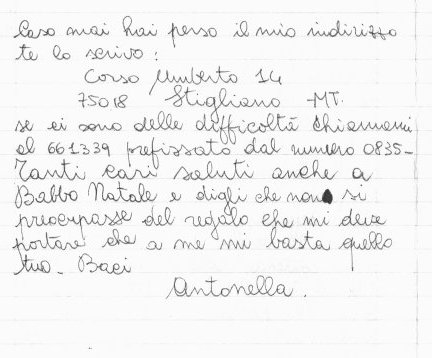 Caso mai hai perso il mio indirizzo
te lo scrivo:
Corso Umberto 14
75018 Stigliano -MT.
se ci sono delle difficoltà chiamami
al 661339 prefissato dal numero 0835-
Tanti cari saluti anche a
Babbo Natale e digli che non si
preocupasse del regalo che mi deve
portare che a me mi basta quello
tuo. Baci
Antonella.